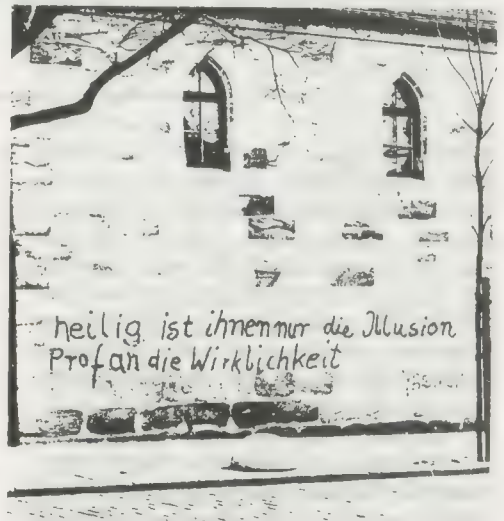 heilig ist ihnen nur die Illusion
Profan die Wirklichkeit